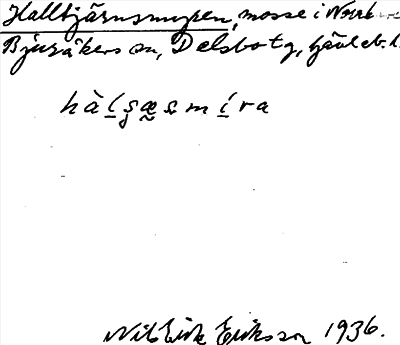 Hallbjärnsmyren, mosse i Norr
Bjuråkers sn, Delsbo tg, Gävleb. l.
Nils Erik Eriksson 1936.